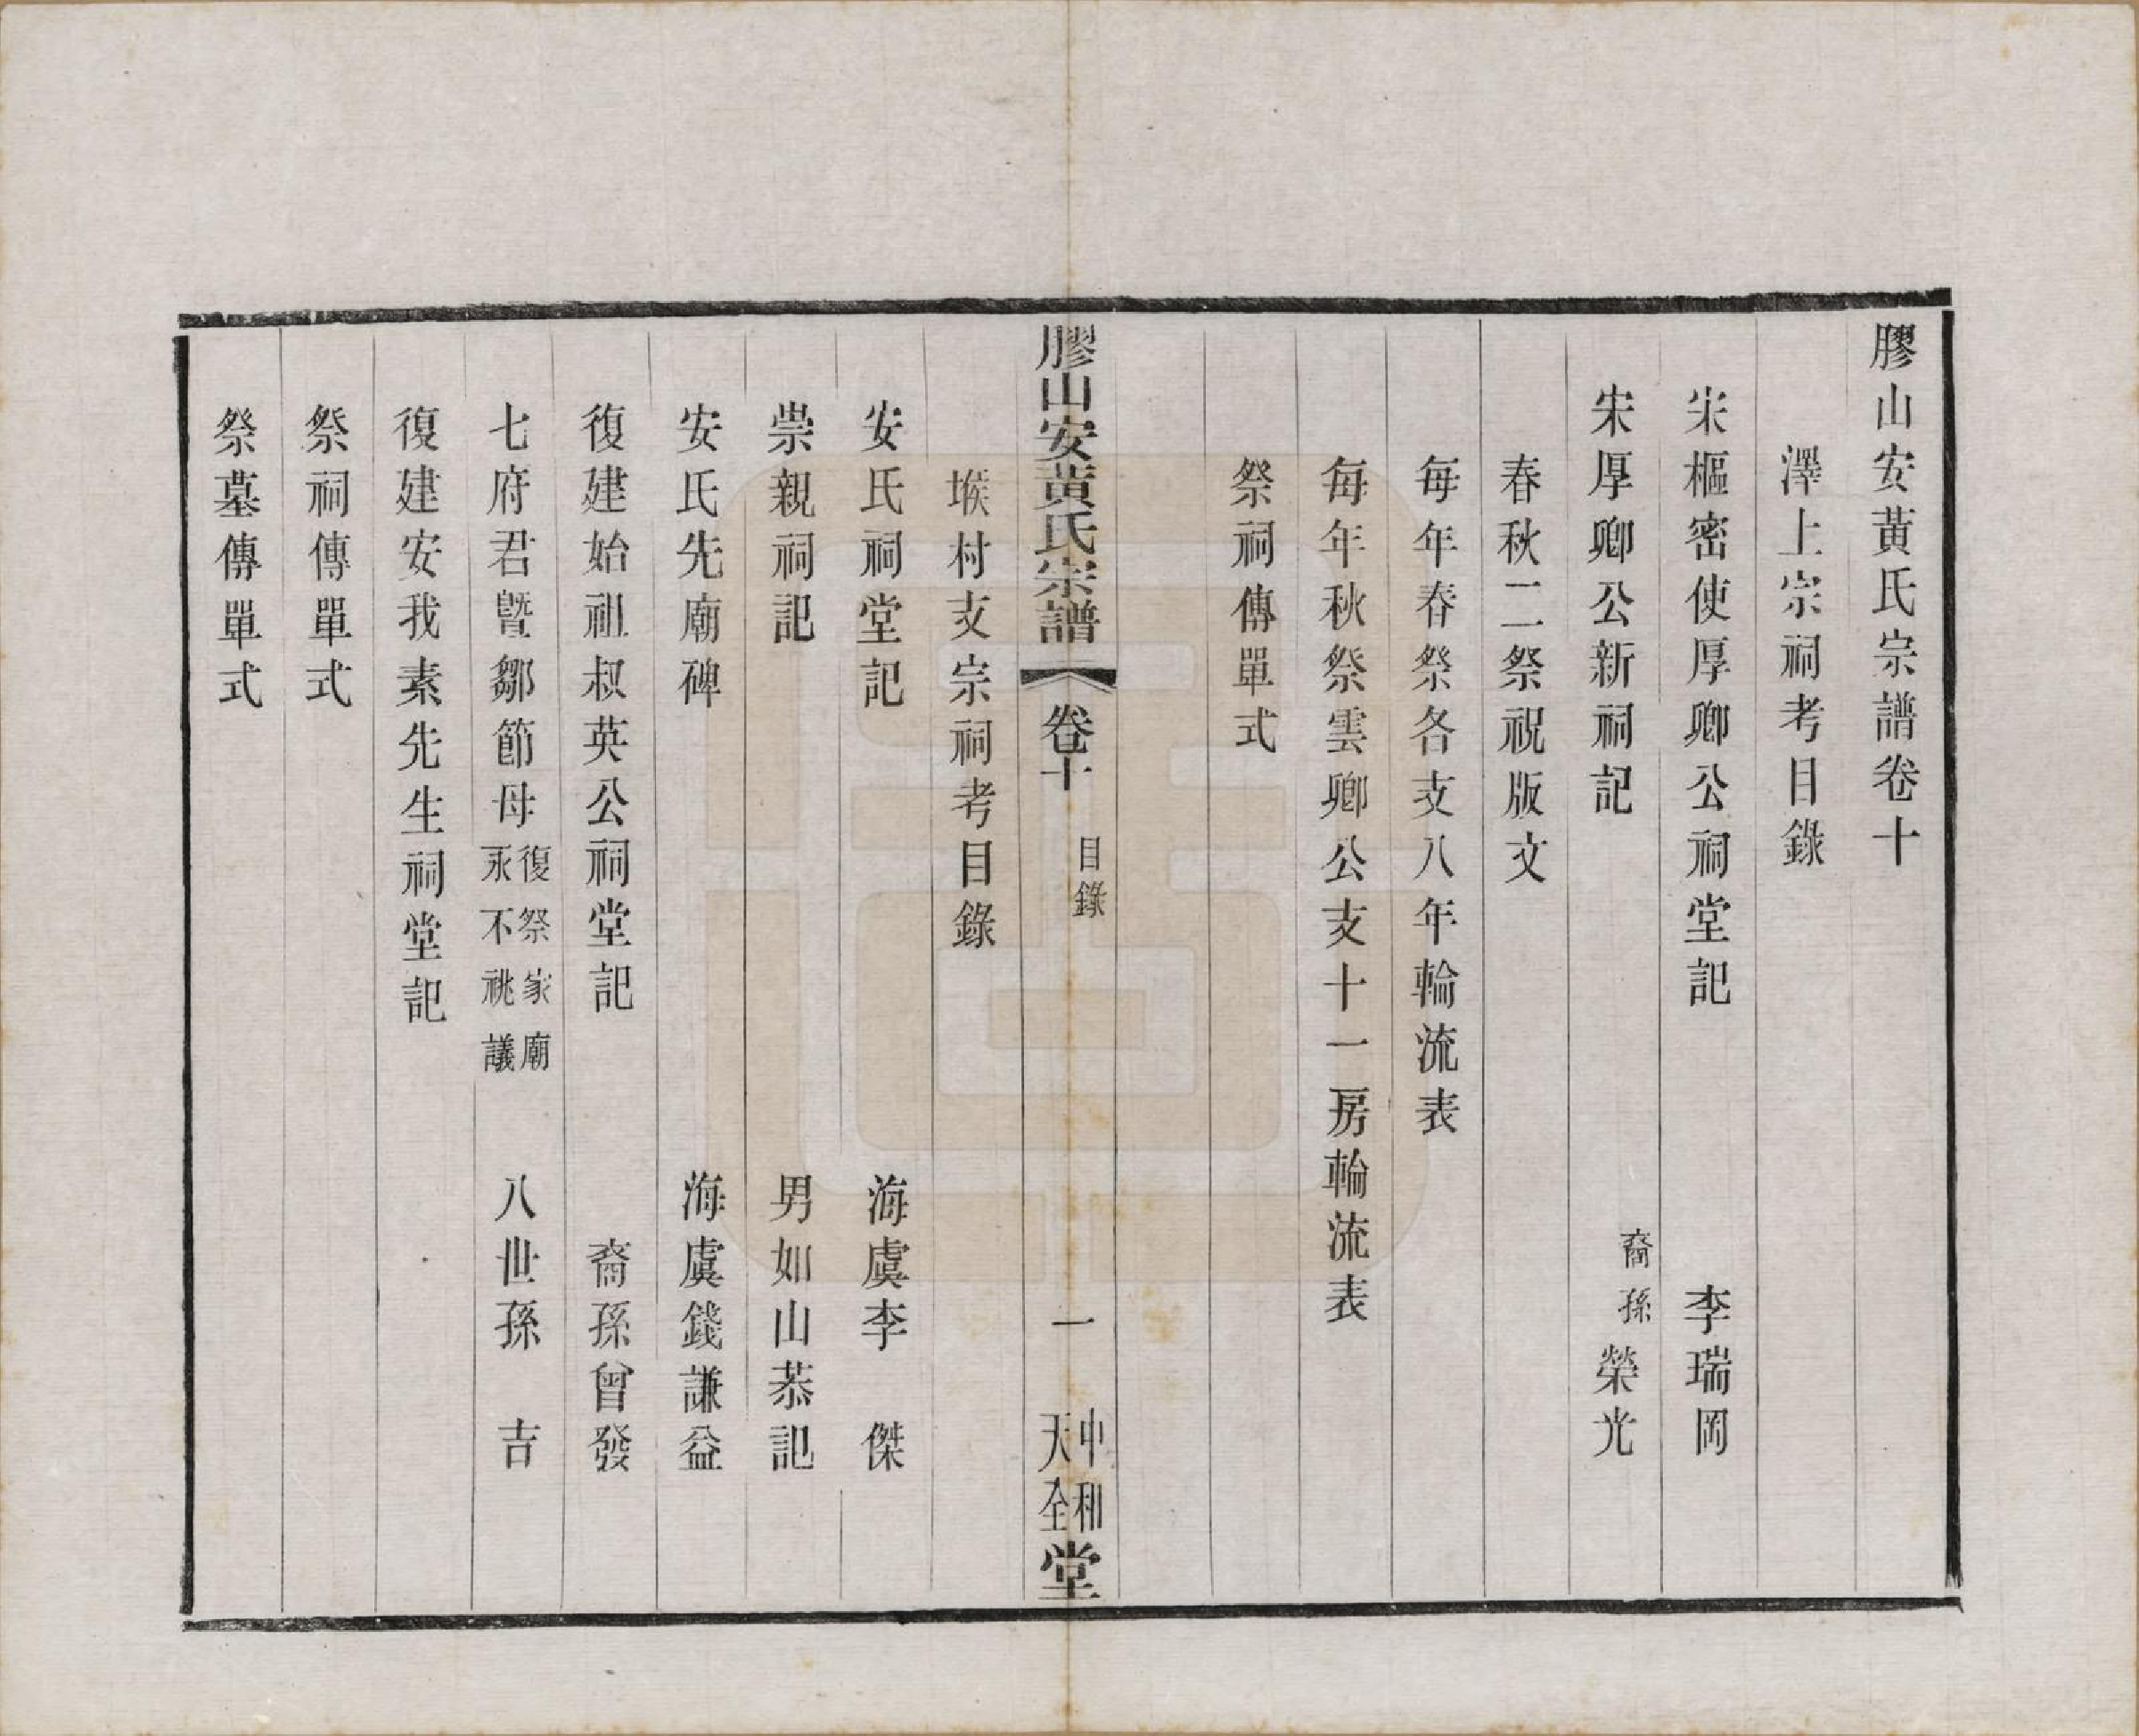 膠山安黃氏宗譜卷十
澤上宗祠考目錄
宋樞密使厚卿公祠堂記　李瑞岡
宋厚卿公新祠記　裔孫榮光
春秋二祭祝版文
每年春祭各支八年輪流表
每年秋祭雲卿公支十一房輪流表
祭祠傳單式
膠山安黃氏宗譜　卷十　目錄　一　中和天全堂
堠村支宗祠考目錄
安氏祠堂記　海虞李　傑
崇親祠記　男如山恭記
安氏先廟碑　海虞錢謙益
復建始祖叔英公祠堂記　裔孫曾發
七府君暨鄒節母復祭家廟永不祧議　八世孫　吉
復建安我素先生祠堂記
祭祠傳單式
祭墓傳單式